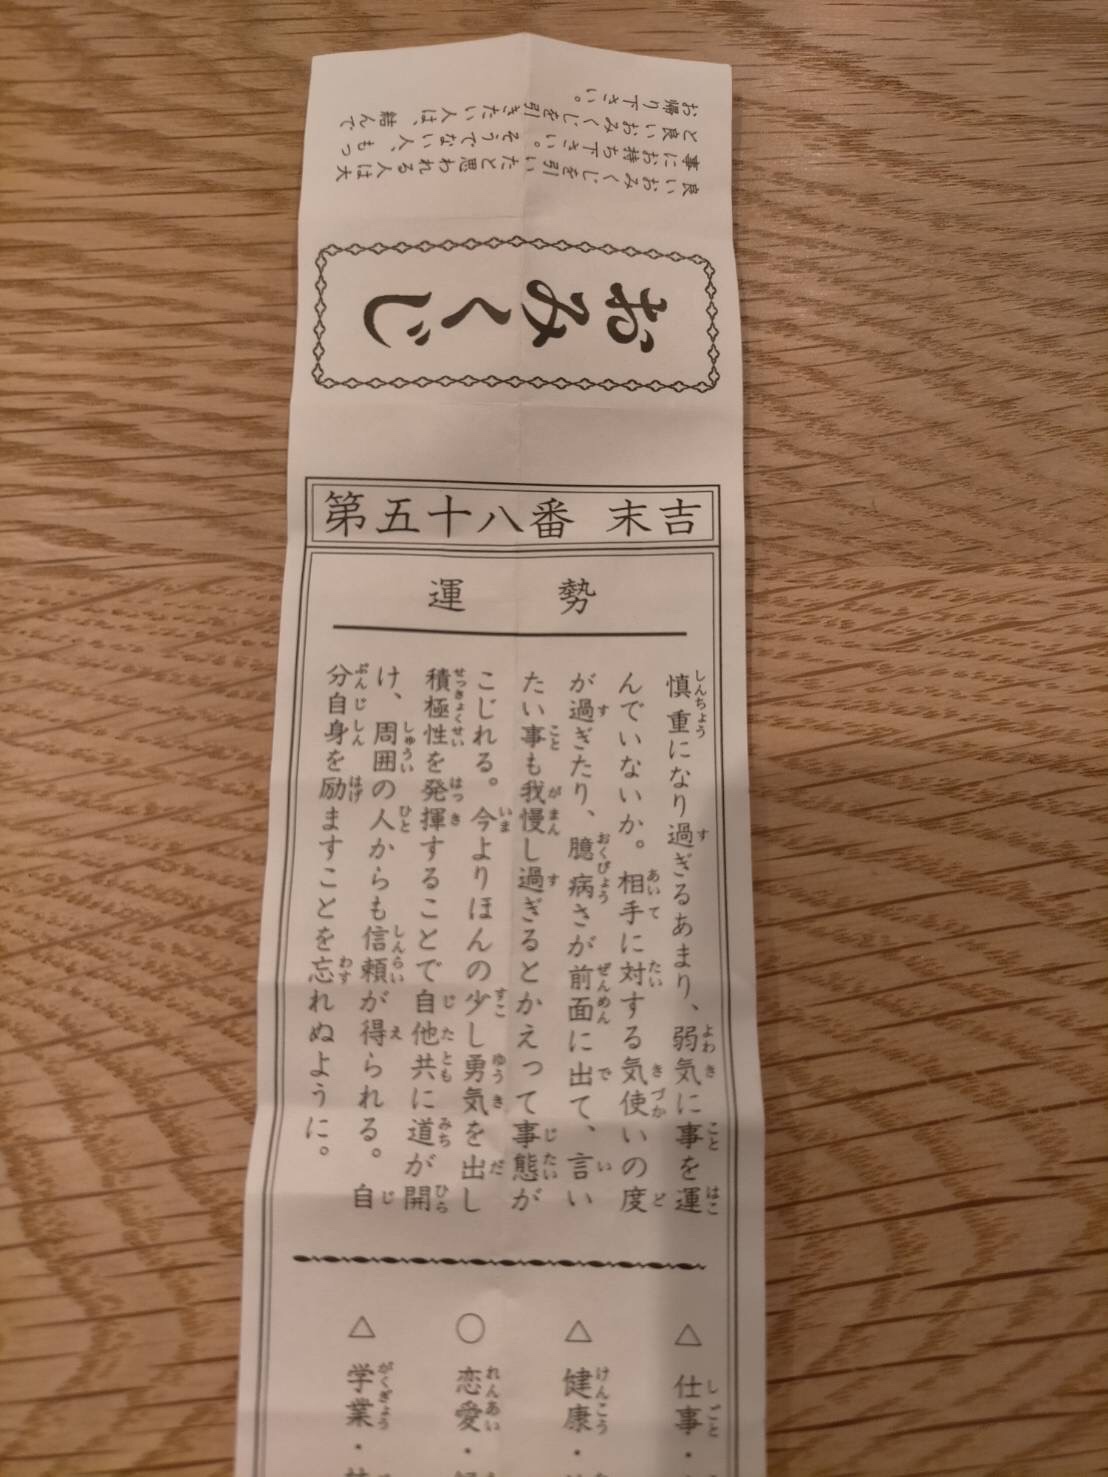 良いおみくじを引いたと思われる人は大
事にお持ち下さい。そうでない人、もっ
と良いおみくじを引きたい人は、結んで
お帰り下さい。
おみくじ
第五十八番 末吉
運勢
慎重になり過ぎるあまり、弱気に事を運
んでいないか。相手に対する気使いの度
が過ぎたり、臆病さが前面に出て、言い
たい事も我慢し過ぎるとかえって事態が
こじれる。今よりほんの少し勇気を出し
積極性を発揮することで自他共に道が開
け、周囲の人からも信頼が得られる。自
分自身を励ますことを忘れぬように。
△ 仕事・
△ 健康・
○ 恋愛・
△ 学業・